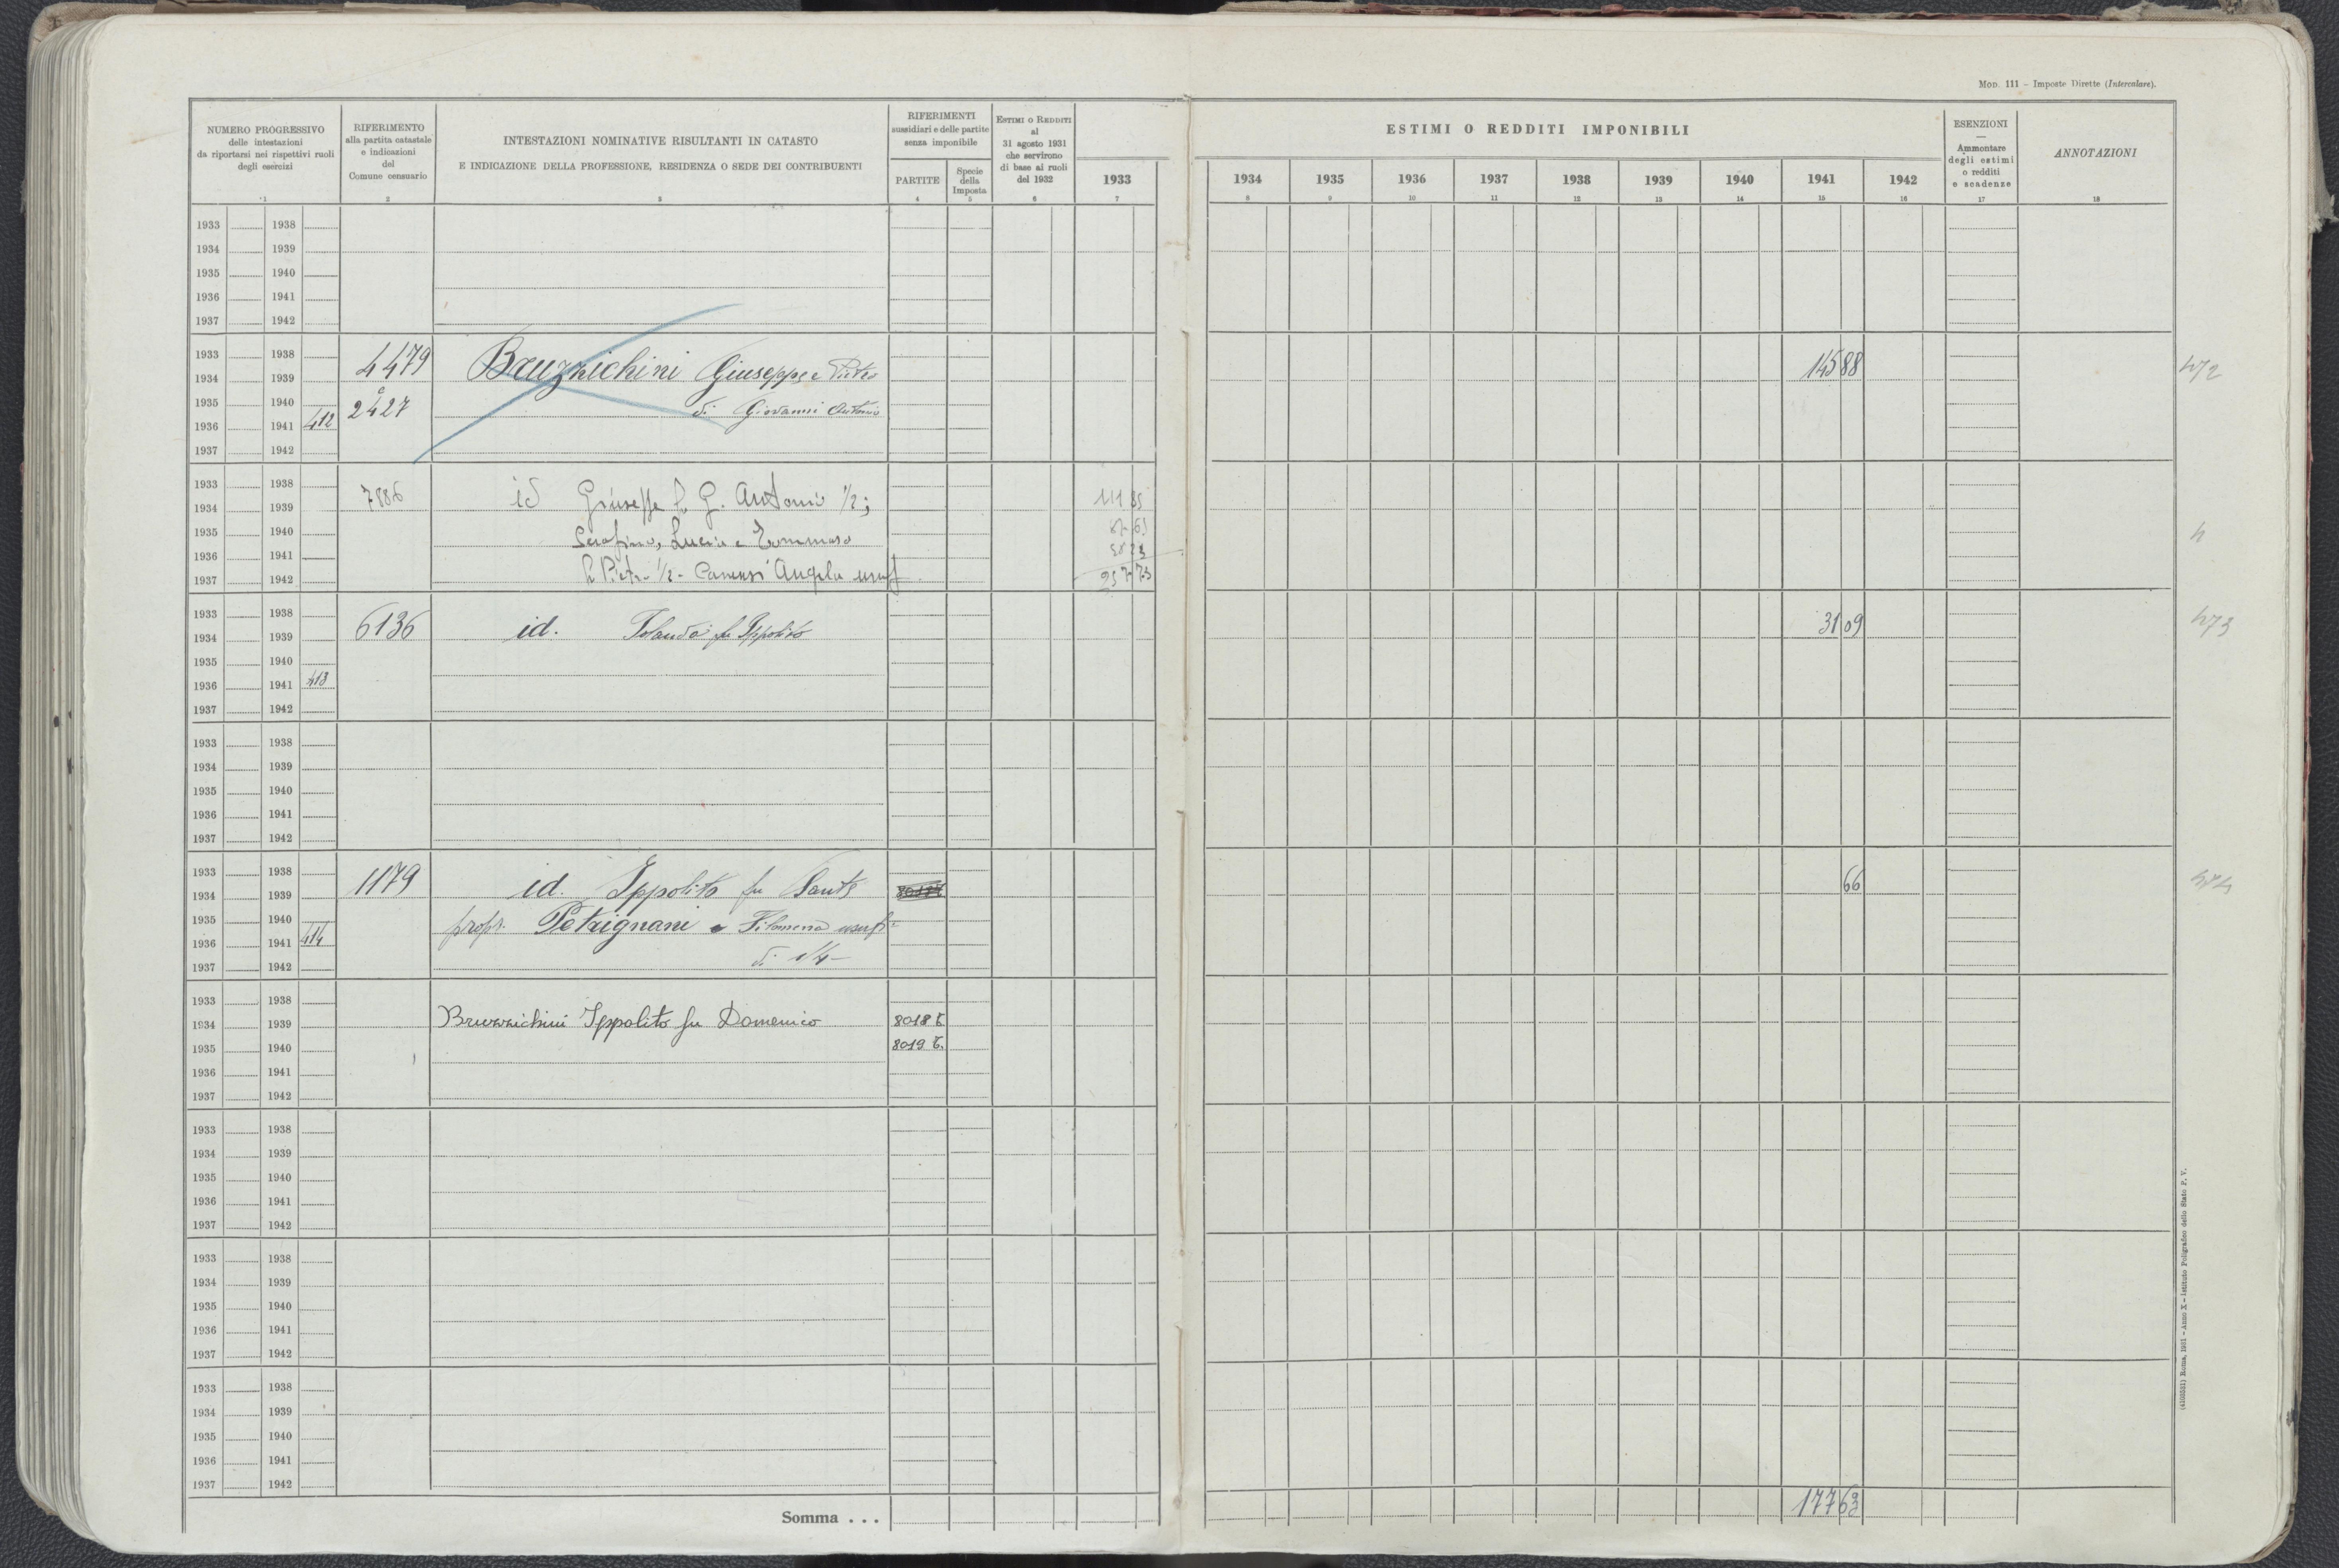 Mod. 111 - Imposte Dirette (Intercalare).
NUMERO PROGRESSIVO
delle intestazioni
da riportarsi nei rispettivi ruoli
degli esercizi
RIFERIMENTO
alla partita catastale
e indicazioni
del
Comune censuario
INTESTAZIONI NOMINATIVE RISULTANTI IN CATASTO
E INDICAZIONE DELLA PROFESSIONE, RESIDENZA O SEDE DEI CONTRIBUENTI
RIFERIMENTI
sussidiari e delle partite
senza imponibile
PARTITE
Specie
della
Imposta
ESTIMI O REDDITI
al
31 agosto 1931
che servirono
di base ai ruoli
del 1932
ESTIMI O REDDITI IMPONIBILI
1933 1934 1935 1936 1937 1938 1939 1940 1941 1942
ESENZIONI
—
Ammontare
degli estimi
o redditi
e scadenze
ANNOTAZIONI
1 2 3 4 5 6 7 8 9 10 11 12 13 14 15 16 17 18
1933 1938
1934 1939
1935 1940
1936 1941
1937 1942
1933 1938 4479 Bruzzichini Giuseppe e Pietro 145 88 472
1934 1939
1935 1940 2427 di Giovanni Antonio
1936 1941 412
1937 1942
1933 1938 7886 id Giuseppe fu G. Antonio 1/2; 111 85
1934 1939
1935 1940 Serafino, Lucia e Tommaso
1936 1941
1937 1942 fu Pietro 1/2 - Canensi Angela usuf 257 73
1933 1938 6136 id. Iolanda fu Ippolito 31 09 473
1934 1939
1935 1940
1936 1941 413
1937 1942
1933 1938
1934 1939
1935 1940
1936 1941
1937 1942
1933 1938 1179 id. Ippolito fu Sante 66 474
1934 1939
1935 1940 propr. Petrignani Filomena usufr.
1936 1941 414
1937 1942 di 1/4 -
1933 1938
1934 1939 Bruzzichini Ippolito fu Domenico 8018 t.
1935 1940 8019 t.
1936 1941
1937 1942
1933 1938
1934 1939
1935 1940
1936 1941
1937 1942
1933 1938
1934 1939
1935 1940
1936 1941
1937 1942
1933 1938
1934 1939
1935 1940
1936 1941
1937 1942
Somma . . . 177 63